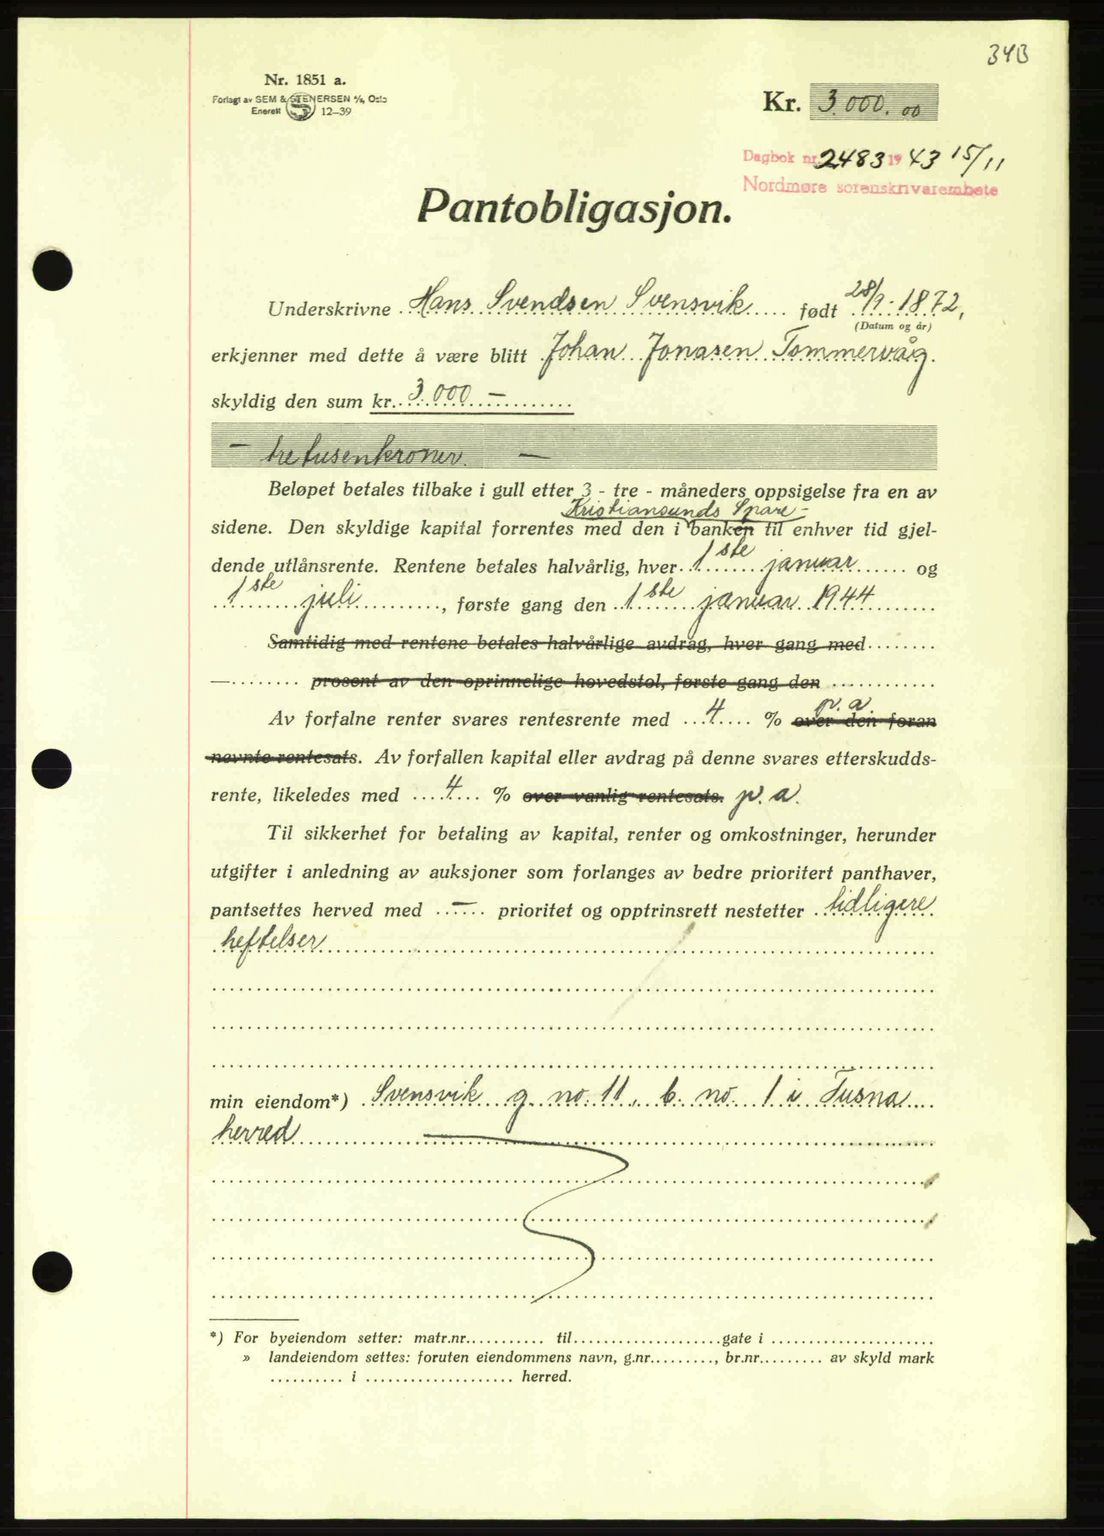 343
Nr. 1851 a.
Forlagt av SEM & STENERSEN A/S, Oslo
Enerett 12—39
Kr. 3.000.00
Dagbok nr. 2483 1943 15/11
Nordmøre sorenskriverembete
Pantobligasjon.
Underskrivne Hans Svendsen Svensvik født 28/9-1872,
(Datum og år)
erkjenner med dette å være blitt Johan Jonasen Tømmervåg
skyldig den sum kr. 3.000 —
— tretusenkroner. —
Beløpet betales tilbake i gull etter 3 - tre - måneders oppsigelse fra en av
Kristiansunds Spare-
sidene. Den skyldige kapital forrentes med den i banken til enhver tid gjel-
dende utlånsrente. Rentene betales halvårlig, hver 1ste januar og
1ste juli, første gang den 1ste januar 1944
Samtidig med rentene betales halvårlige avdrag, hver gang med
— prosent av den oprinnelige hovedstol, første gang den
p.a.
Av forfalne renter svares rentesrente med 4 % over den foran
nevnte rentesats. Av forfallen kapital eller avdrag på denne svares etterskudds-
rente, likeledes med 4 % over vanlig rentesats. p.a.
Til sikkerhet for betaling av kapital, renter og omkostninger, herunder
utgifter i anledning av auksjoner som forlanges av bedre prioritert panthaver,
pantsettes herved med — prioritet og opptrinsrett nestetter tidligere
heftelser
min eiendom*) Svensvik g. no. 11, b. no. 1 i Tusna
herred
*) For byeiendom setter: matr.nr. til gate i
» landeiendom settes: foruten eiendommens navn, g.nr., br.nr. av skyld mark
i herred.